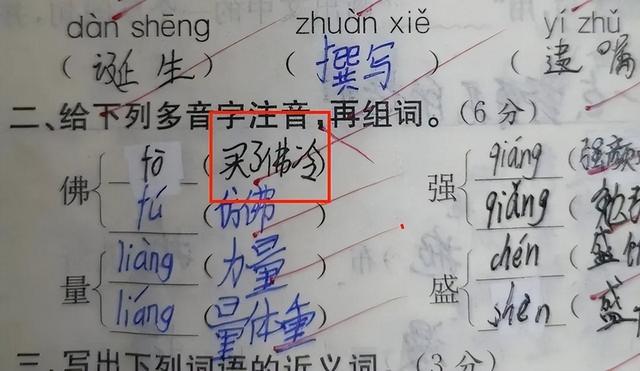 dàn shēng zhuàn xiě yí zhǔ
(诞生) (撰写) (遗嘱
二、给下列多音字注音,再组词。(6分)
佛 fō (买了佛冷) 强 qiáng (强颜
fú (仿佛) qiǎng (
量 liàng (力量) 盛 chén (盛
liáng (量体重) shèn (盛
三、写出下列词语的近义词。(3分)